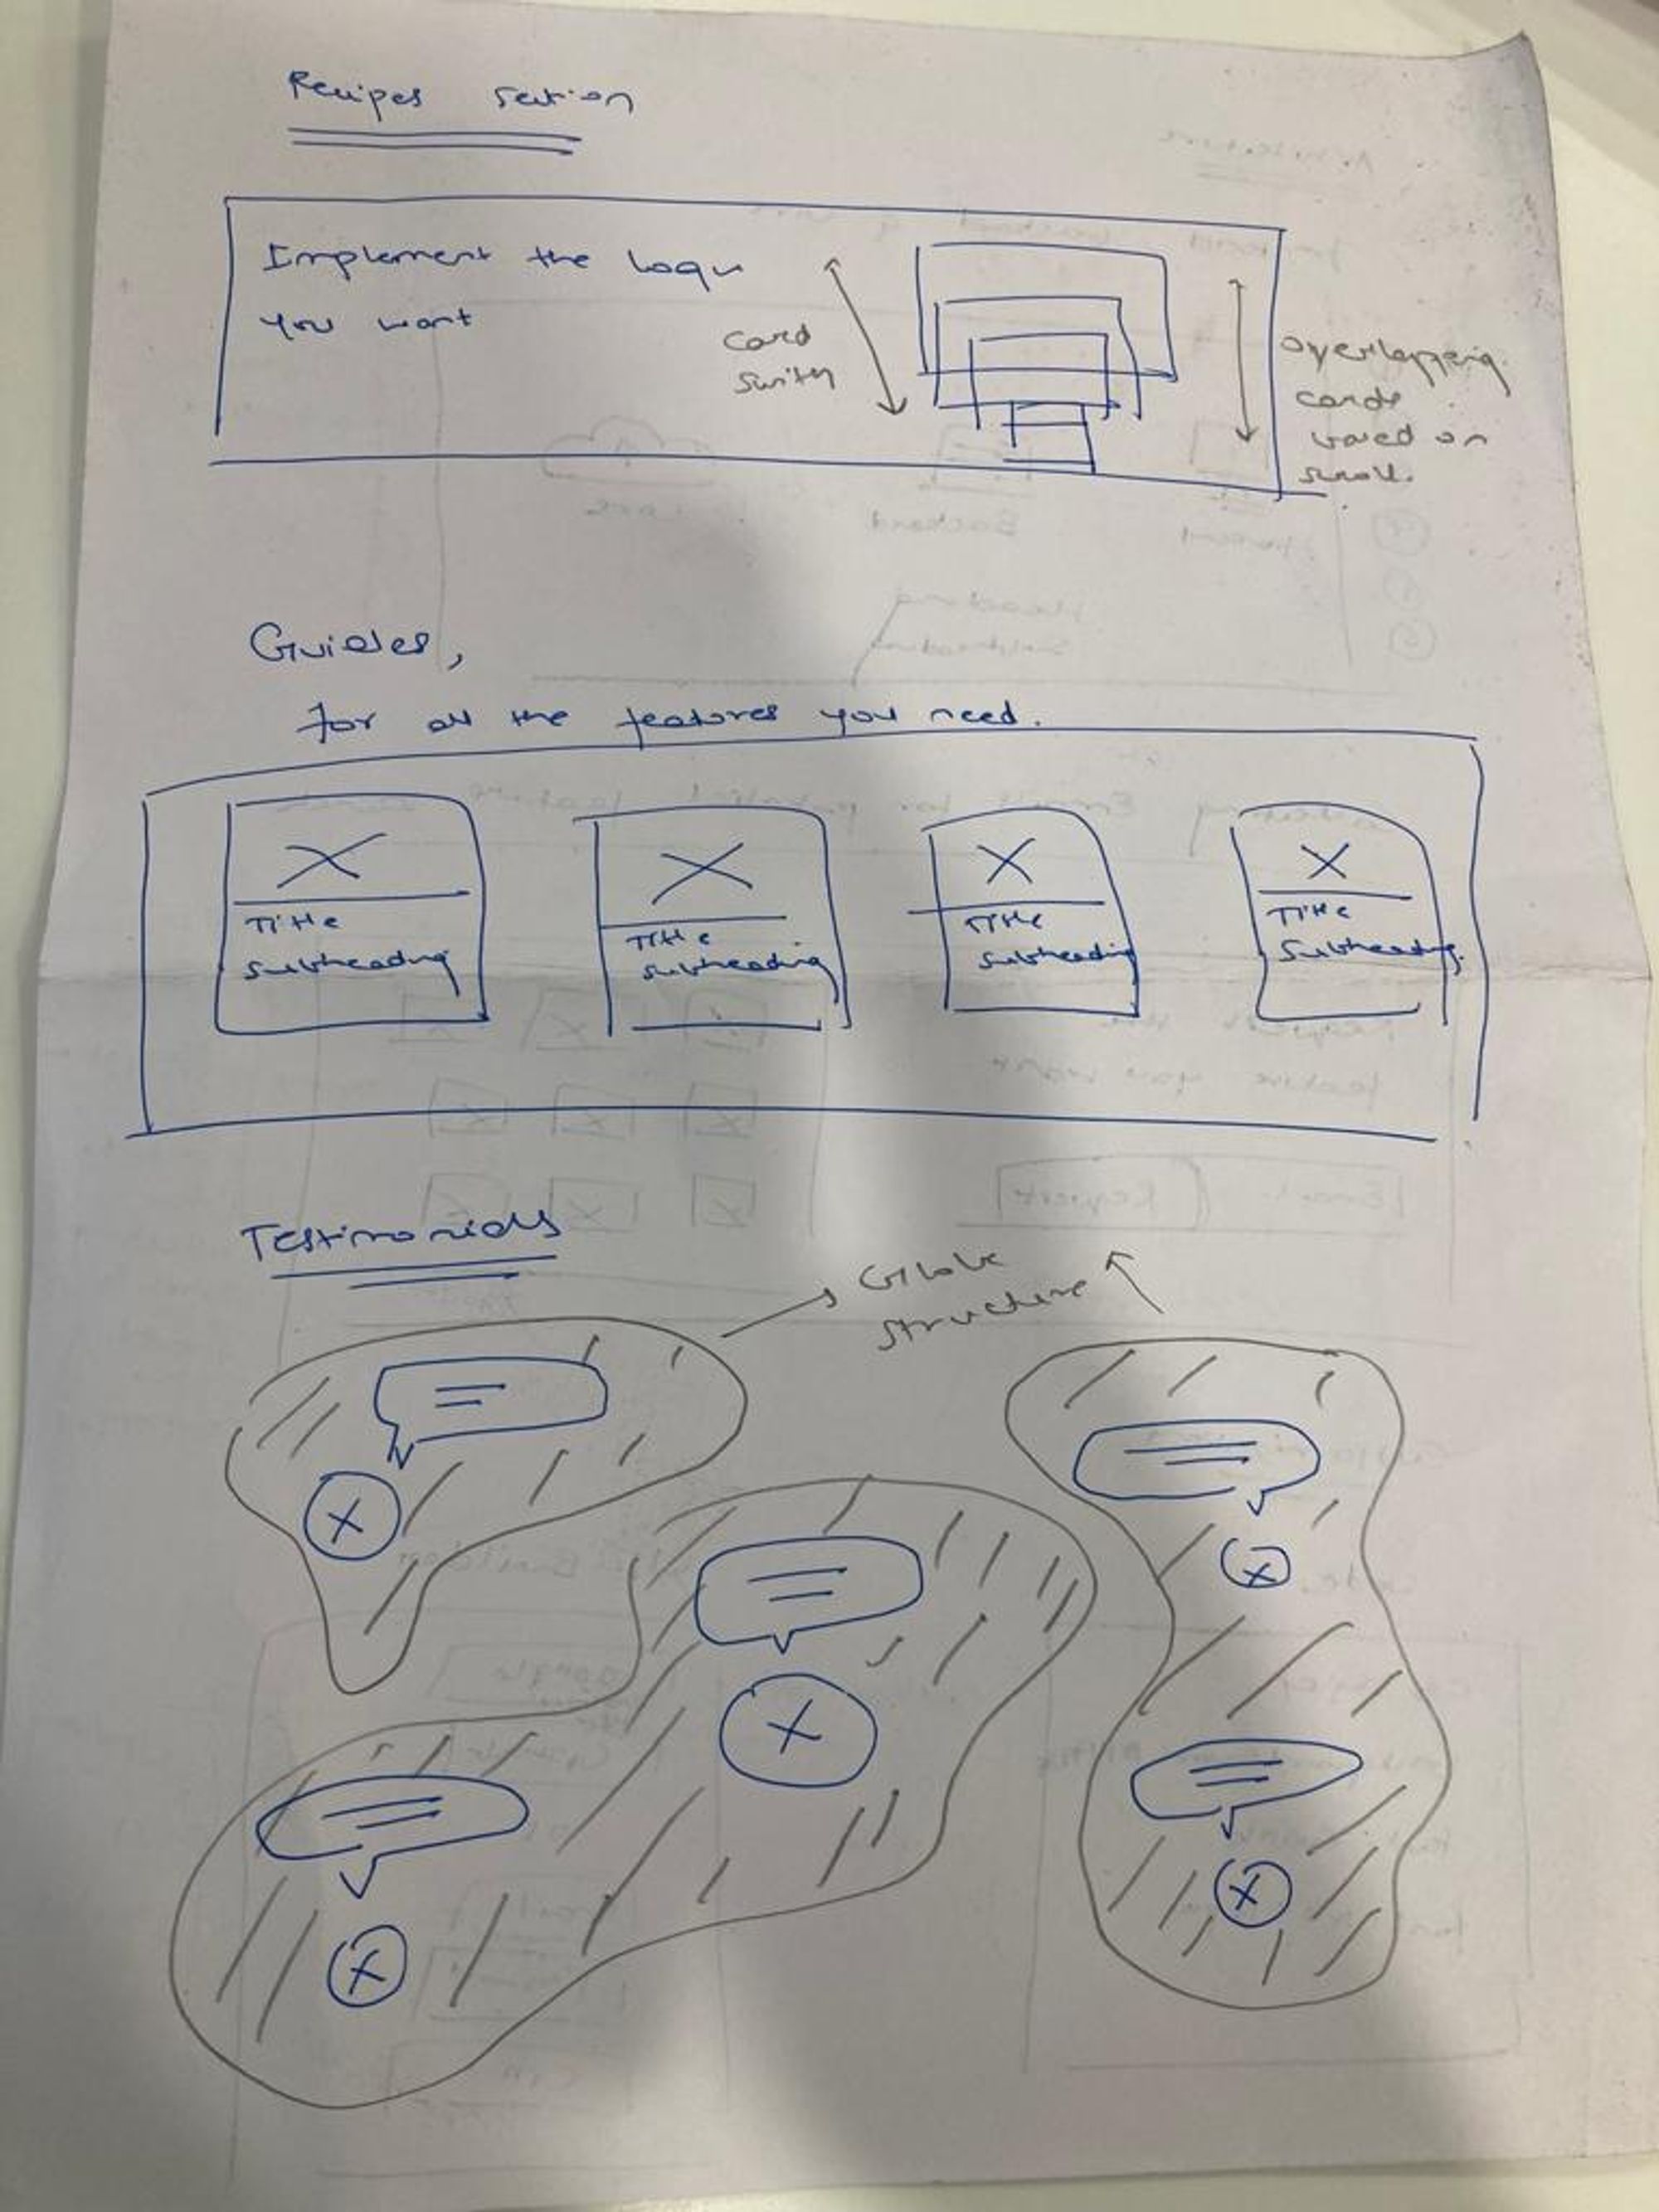 Recipes section
Implement the logic
you want
card
switch
overlapping
cards
based on
scroll.
Guides,
for all the features you need.
Title
Subheading
Title
Subheading
Title
Subheading
Title
Subheading.
Testimonials
Globe
structure